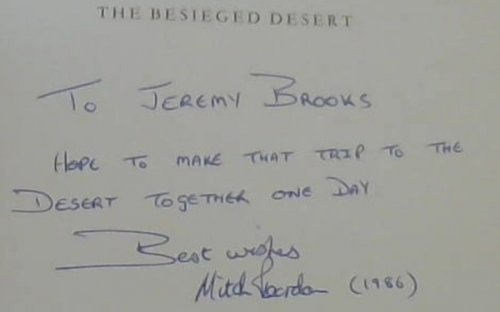 THE BESIEGED DESERT
TO JEREMY BROOKS
HOPE TO MAKE THAT TRIP TO THE
DESERT TOGETHER ONE DAY
Best wishes
Mitch (1986)